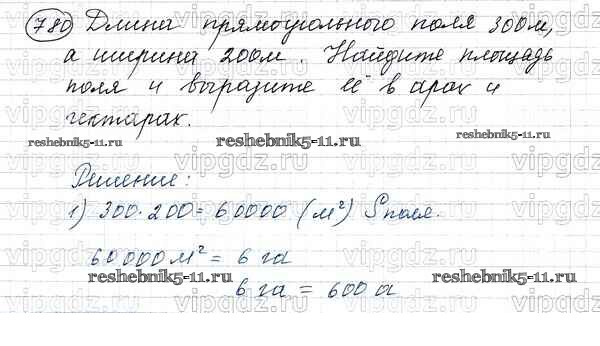 780 Длина прямоугольного поля 300м,
а ширина 200м. Найдите площадь
поля и выразите её в арах и
гектарах.
reshebnik5-11.ru
reshebnik5-11.ru
reshebnik5-11.ru
Решение:
1) 300·200=60000 (м²) Sполя.
60000м² = 6 га
reshebnik5-11.ru
reshebnik5-11.ru
6 га = 600 а
vipgdz.ru